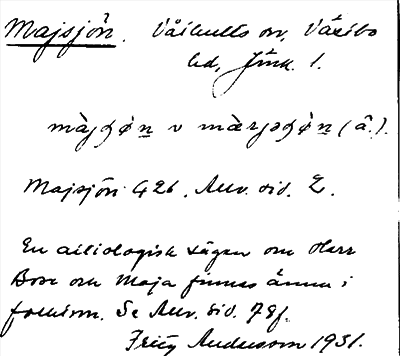 Majsjön. Våthults sn, Västbo
hd, Jönk. l.
màjʃø̀n v mæ̀rjəʃø̀n (â.).
Majsjön 426. Anv. sid. 2.
En aitiologisk sägen om Herr
Bose och Maja finnes ännu i
folkminn. Se Anv. sid. 78f.
Fritz Andersson 1931.